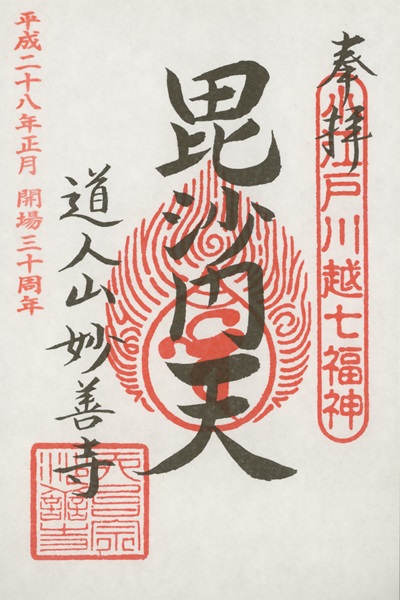 奉拝
小江戸川越七福神
毘沙門天
道人山妙善寺
平成二十八年正月 開場三十周年
天台宗
妙善寺